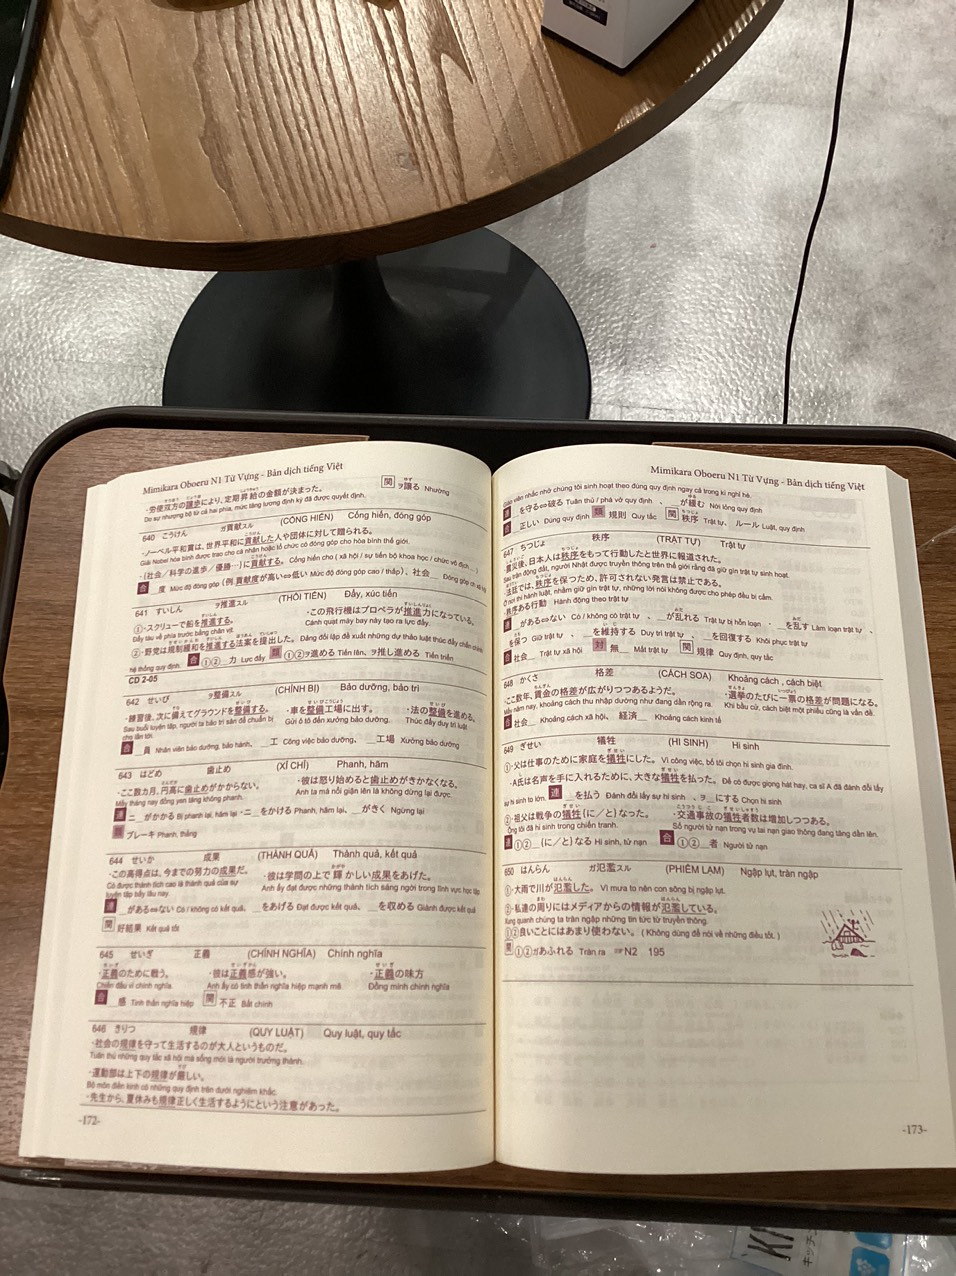 Mimikara Oboeru N1 Từ Vựng - Bản dịch tiếng Việt
・労使双方の譲歩により、定期昇給の金額が決まった。 関 ヲ譲る Nhường
Do sự nhượng bộ từ cả hai phía, mức tăng lương định kỳ đã được quyết định.
640 こうけん ガ貢献スル (CỐNG HIẾN) Cống hiến, đóng góp
・ノーベル平和賞は、世界平和に貢献した人や団体に対して贈られる。
Giải Nobel hòa bình được trao cho cá nhân hoặc tổ chức có đóng góp cho hòa bình thế giới.
・(社会/科学の進歩/優勝…)に貢献する。 Cống hiến cho (xã hội / sự tiến bộ khoa học / chức vô địch…)
合 _度 Mức độ đóng góp (例. 貢献度が高い⇔低い Mức độ đóng góp cao / thấp)、社会_ Đóng góp
641 すいしん ヲ推進スル (THÔI TIẾN) Đẩy, xúc tiến
①・スクリューで船を推進する。 ・この飛行機はプロペラが推進力になっている。
Đẩy tàu về phía trước bằng chân vịt. Cánh quạt máy bay này tạo ra lực đẩy.
②・野党は規制緩和を推進する法案を提出した。 Đảng đối lập đề xuất những dự thảo luật thúc đẩy
hệ thống quy định. 合 ①②_力 Lực đẩy 類 ①②ヲ進める Tiến lên、ヲ推し進める Tiến triển
CD 2-05
642 せいび ヲ整備スル (CHỈNH BỊ) Bảo dưỡng, bảo trì
・練習後、次に備えてグラウンドを整備する。 ・車を整備工場に出す。 ・法の整備を進める。
Sau buổi luyện tập, người ta bảo trì sân để chuẩn bị Gửi ô tô đến xưởng bảo dưỡng. Thúc đẩy duy trì luật
cho lần tới.
合 _員 Nhân viên bảo dưỡng, bảo hành、_工 Công việc bảo dưỡng、_工場 Xưởng bảo dưỡng
643 はどめ 歯止め (XỈ CHỈ) Phanh, hãm
・ここ数カ月、円高に歯止めがかからない。 ・彼は怒り始めると歯止めがきかなくなる。
Mấy tháng nay đồng yen tăng không phanh. Anh ta mà nổi giận lên là không dừng lại được.
連 ニ_がかかる Bị phanh lại, hãm lại・ニ_をかける Phanh, hãm lại、_がきく Ngừng lại
類 ブレーキ Phanh, thắng
644 せいか 成果 (THÀNH QUẢ) Thành quả, kết quả
・この高得点は、今までの努力の成果だ。 ・彼は学問の上で輝かしい成果をあげた。
Có được thành tích cao là thành quả của sự Anh ấy đạt được những thành tích sáng ngời trong lĩnh vực học tập
luyện tập bấy lâu nay.
連 _がある⇔ない Có / không có kết quả、_をあげる Đạt được kết quả、_を収める Giành được kết quả
関 好結果 Kết quả tốt
645 せいぎ 正義 (CHÍNH NGHĨA) Chính nghĩa
・正義のために戦う。 ・彼は正義感が強い。 ・正義の味方
Chiến đấu vì chính nghĩa. Anh ấy có tinh thần nghĩa hiệp mạnh mẽ. Đồng minh chính nghĩa
合 _感 Tinh thần nghĩa hiệp 関 不正 Bất chính
646 きりつ 規律 (QUY LUẬT) Quy luật, quy tắc
・社会の規律を守って生活するのが大人というものだ。
Tuân thủ những quy tắc xã hội mà sống mới là người trưởng thành.
・運動部は上下の規律が厳しい。
Bộ môn điền kinh có những quy định trên dưới nghiêm khắc.
・先生から、夏休みも規律正しく生活するようにという注意があった。
-172-
Mimikara Oboeru N1 Từ Vựng - Bản dịch tiếng Việt
Giáo viên nhắc nhở chúng tôi sinh hoạt theo đúng quy định ngay cả trong kì nghỉ hè.
連 _を守る⇔破る Tuân thủ / phá vỡ quy định、_が緩む Nới lỏng quy định
合 _正しい Đúng quy định 類 規則 Quy tắc 関 秩序 Trật tự、ルール Luật, quy định
647 ちつじょ 秩序 (TRẬT TỰ) Trật tự
・震災後、日本人は秩序をもって行動したと世界に報道された。
Sau trận động đất, người Nhật được truyền thông trên thế giới rằng đã giữ gìn trật tự sinh hoạt.
・法廷では、秩序を保つため、許可されない発言は禁止である。
Ở nơi thi hành luật, nhằm giữ gìn trật tự, những lời nói không được cho phép đều bị cấm.
・秩序ある行動 Hành động theo trật tự
連 _がある⇔ない Có / không có trật tự、_が乱れる Trật tự bị hỗn loạn、_を乱す Làm loạn trật tự、
_を保つ Giữ trật tự、_を維持する Duy trì trật tự、_を回復する Khôi phục trật tự
合 社会_ Trật tự xã hội 対 無_ Mất trật tự 関 規律 Quy định, quy tắc
648 かくさ 格差 (CÁCH SOA) Khoảng cách , cách biệt
・ここ数年、賃金の格差が広がりつつあるようだ。 ・選挙のたびに一票の格差が問題になる。
Mấy năm nay, khoảng cách thu nhập dường như đang dần rộng ra. Khi bầu cử, cách biệt một phiếu cũng là vấn đề.
合 社会_ Khoảng cách xã hội、経済_ Khoảng cách kinh tế
649 ぎせい 犠牲 (HI SINH) Hi sinh
①・父は仕事のために家庭を犠牲にした。 Vì công việc, bố tôi chọn hi sinh gia đình.
・A氏は名声を手に入れるために、大きな犠牲を払った。 Để có được giọng hát hay, ca sĩ A đã đánh đổi lấy
sự hi sinh to lớn. 連 _を払う Đánh đổi lấy sự hi sinh、ヲ_にする Chọn hi sinh
②・祖父は戦争の犠牲(に/と)なった。 ・交通事故の犠牲者数は増加しつつある。
Ông tôi đã hi sinh trong chiến tranh. Số người tử nạn trong vụ tai nạn giao thông đang tăng dần lên.
連 ①②_(に/と)なる Hi sinh, tử nạn 合 ①②_者 Người tử nạn
650 はんらん ガ氾濫スル (PHIẾM LẠM) Ngập lụt, tràn ngập
①・大雨で川が氾濫した。 Vì mưa to nên con sông bị ngập lụt.
②・私達の周りにはメディアからの情報が氾濫している。
Xung quanh chúng ta tràn ngập những tin tức từ truyền thông.
①②良いことにはあまり使わない。( Không dùng để nói về những điều tốt. )
関 ①②ガあふれる Tràn ra ☞N2 195
-173-